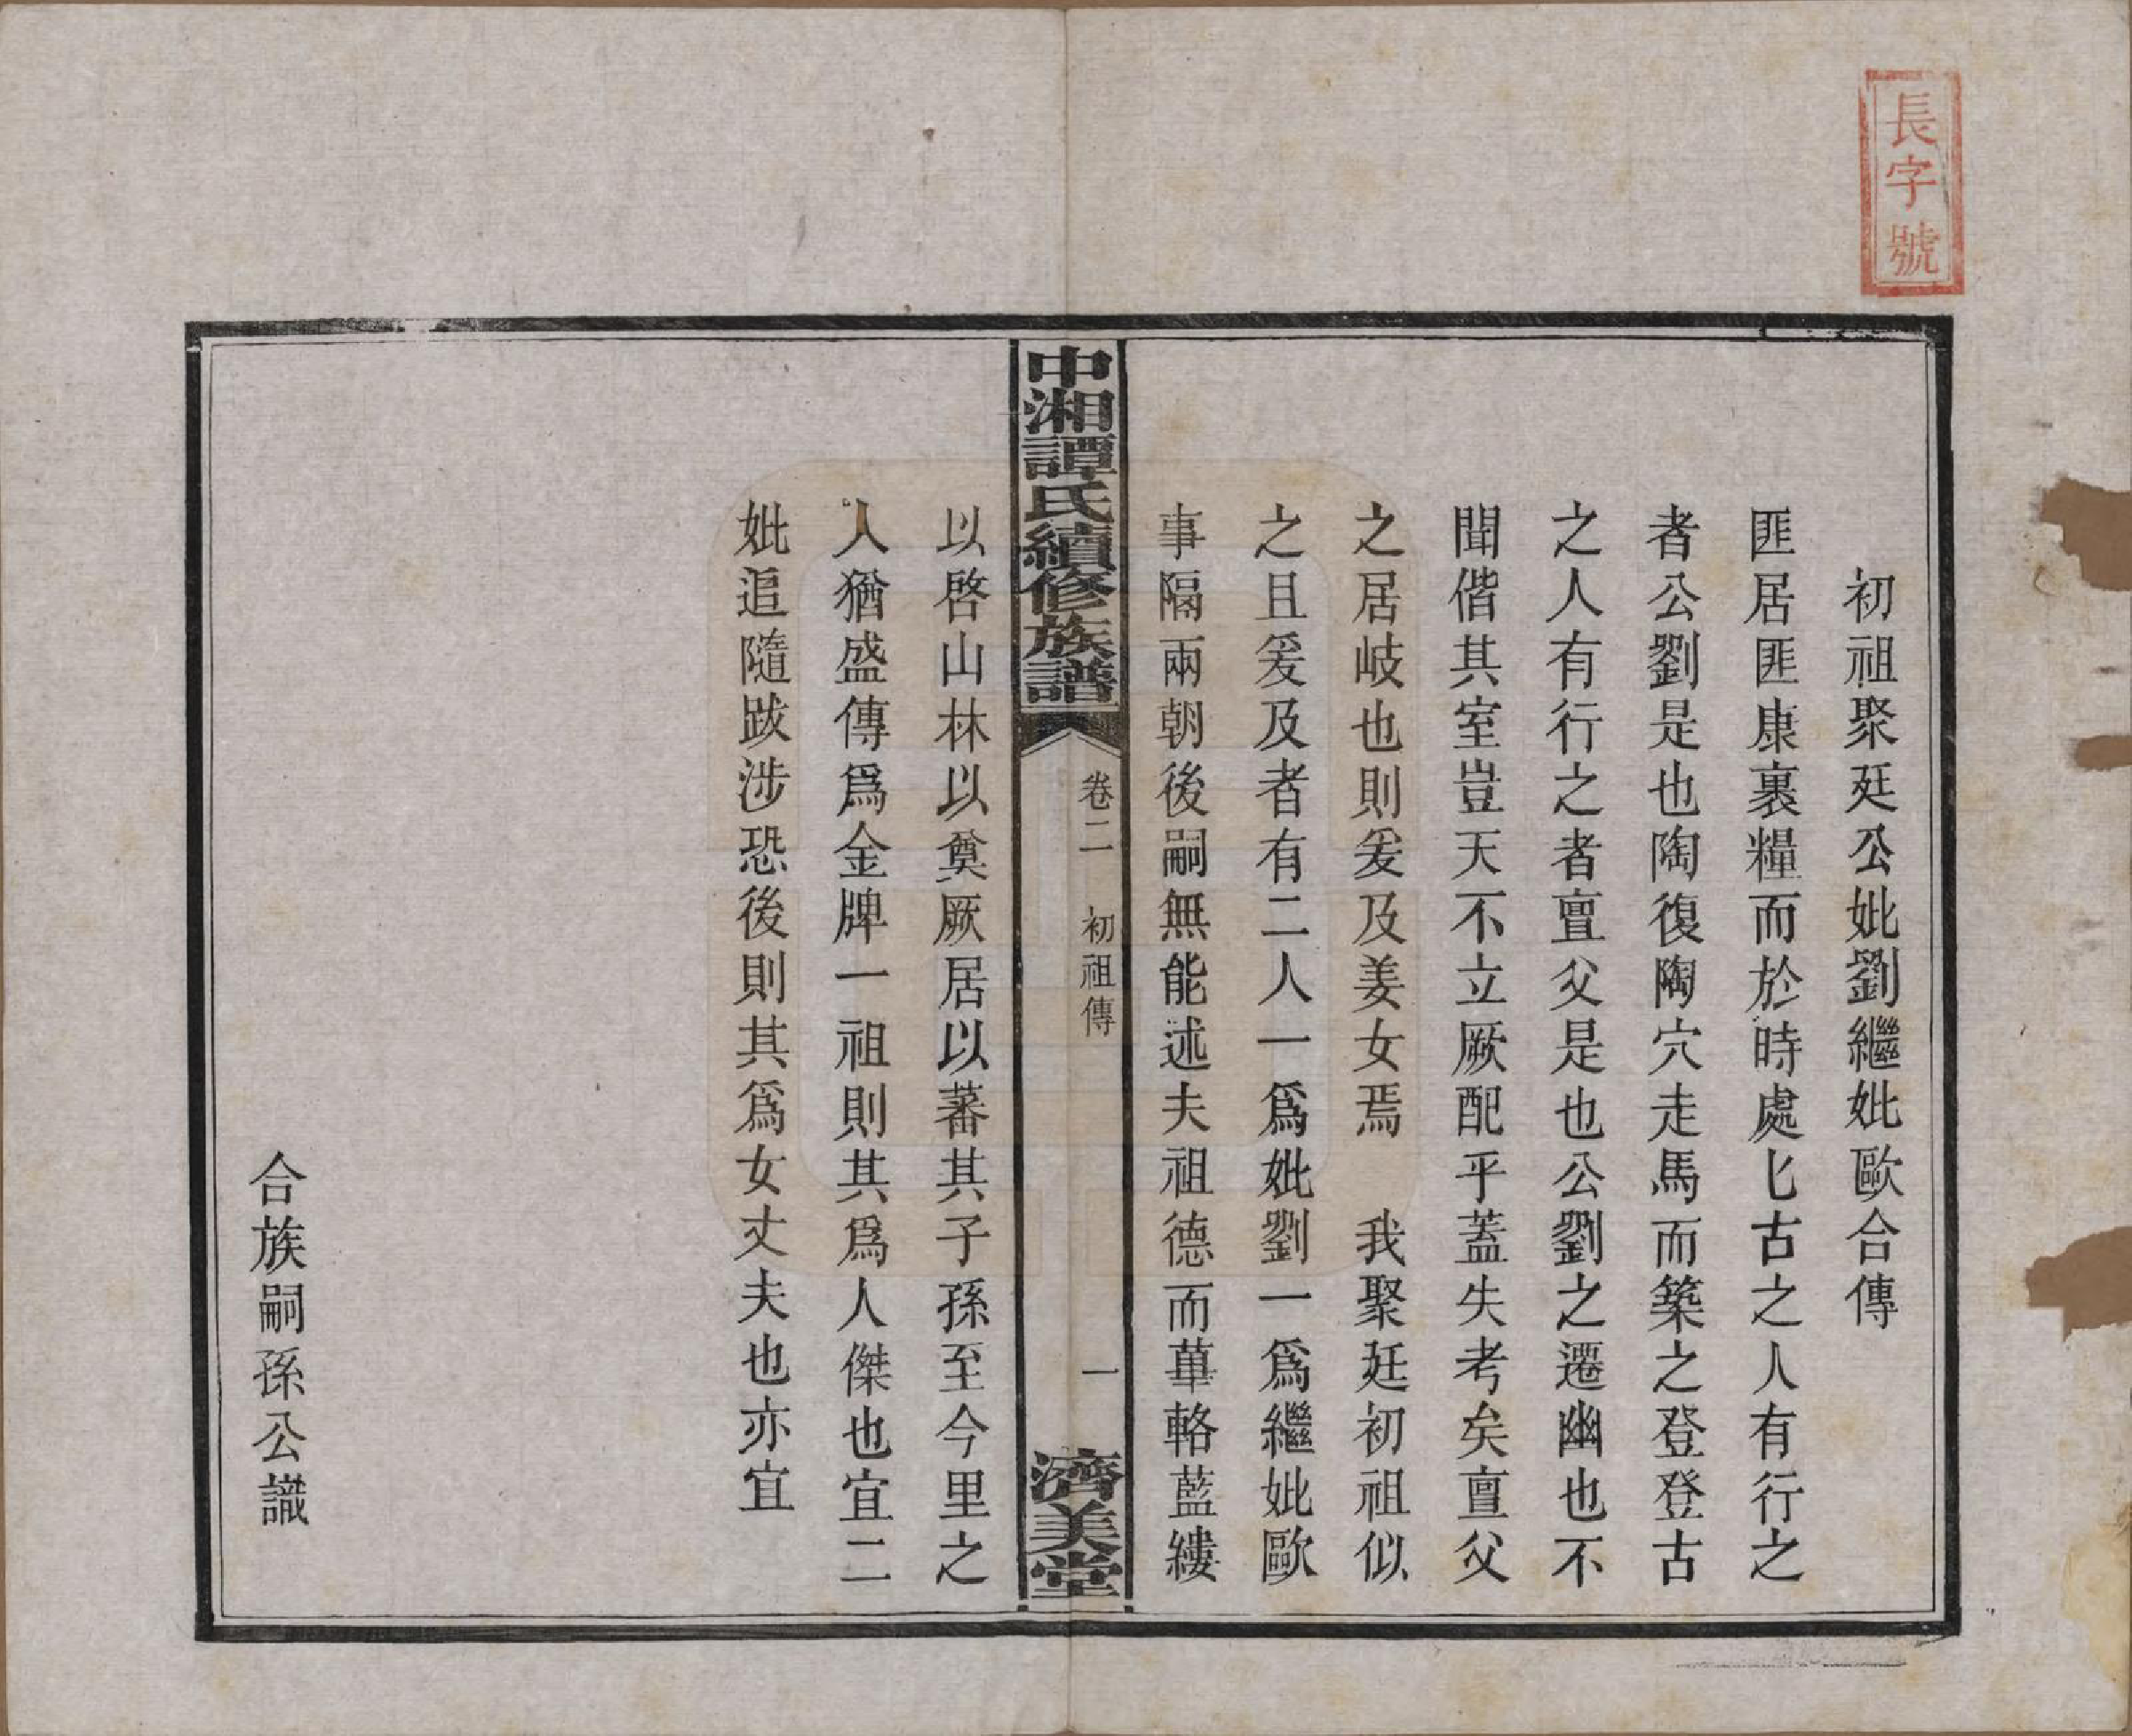 長字號
初祖聚廷公妣劉繼妣歐合傳
匪居匪康裹糧而於時處匕古之人有行之
者公劉是也陶復陶穴走馬而築之登登古
之人有行之者亶父是也公劉之遷幽也不
聞偕其室豈天不立厥配乎蓋失考矣亶父
之居岐也則爰及姜女焉　我聚廷初祖似
之且爰及者有二人一爲妣劉一爲繼妣歐
事隔兩朝後嗣無能述夫祖德而蓽輅藍縷
中湘譚氏續修族譜　卷二　初祖傳　一　濟美堂
以啓山林以奠厥居以蕃其子孫至今里之
人猶盛傳爲金牌一祖則其爲人傑也宜二
妣追隨跋涉恐後則其爲女丈夫也亦宜
合族嗣孫公識